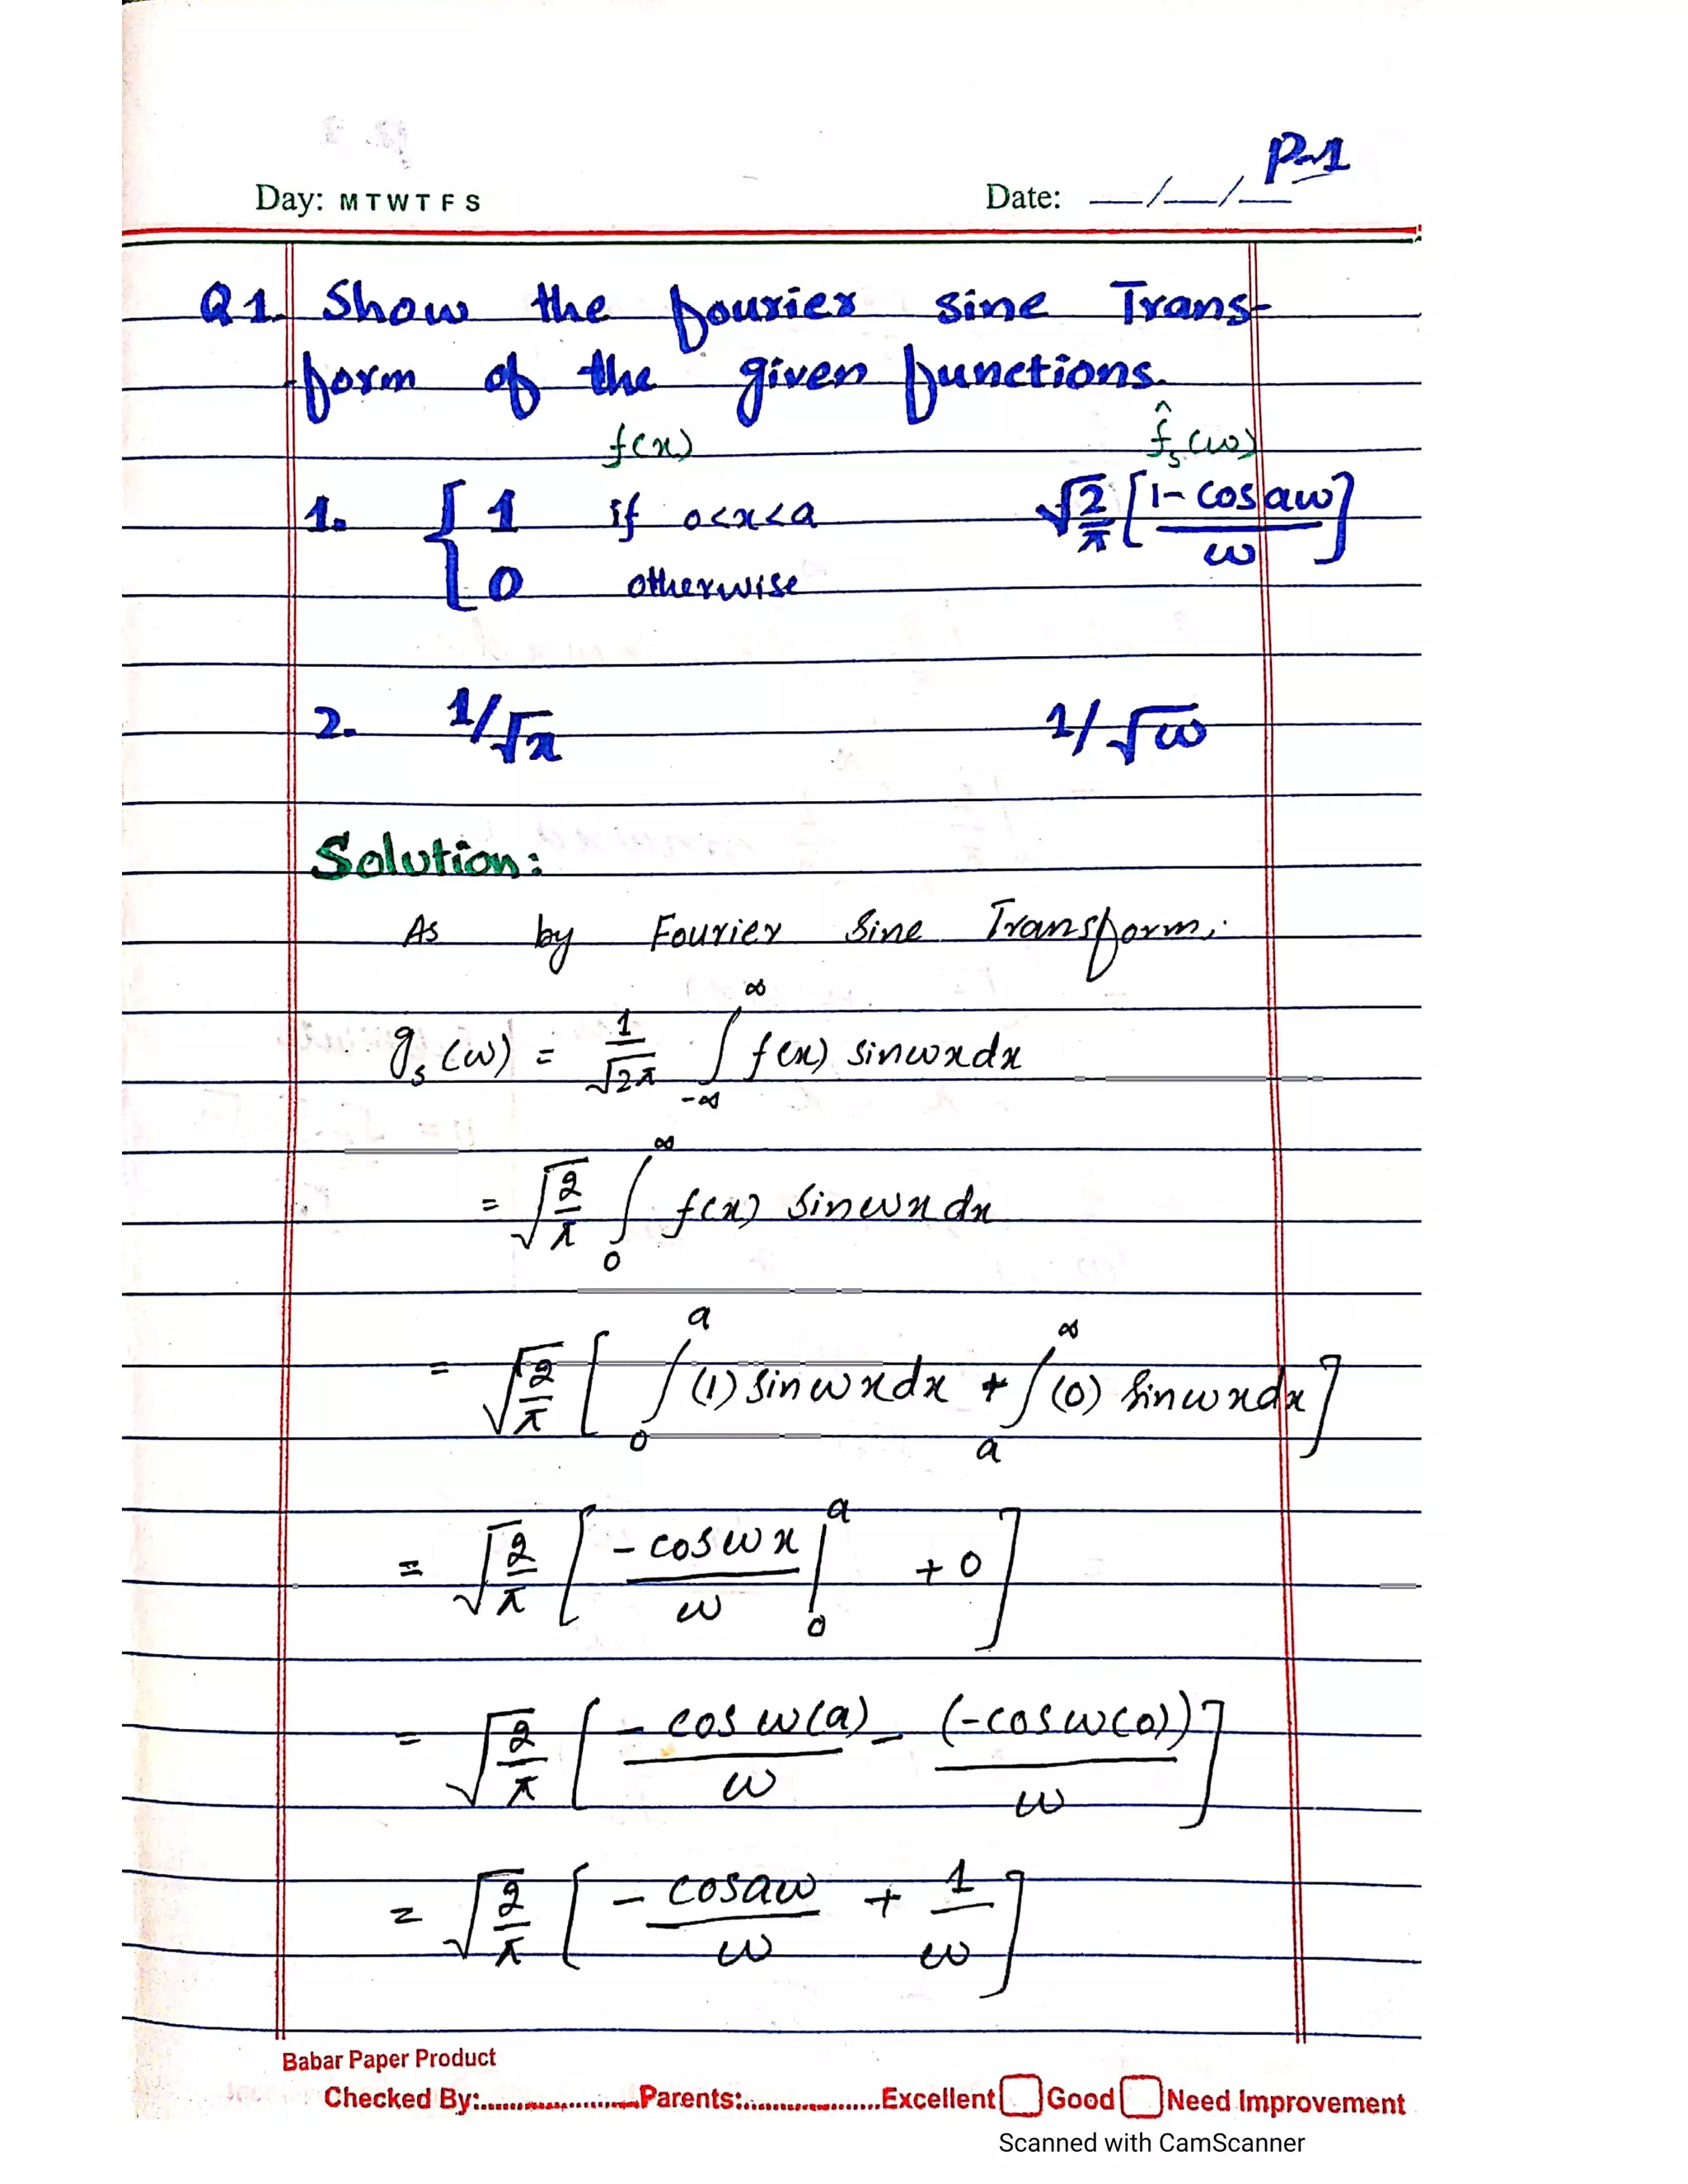 P-1
Day: M T W T F S Date: __/__/__
Q1. Show the fourier sine Trans-
form of the given functions.
f(x) f̂ₛ(ω)
1. { 1 if 0<x<a √(2/π) [(1- cos aω)/ω]
0 otherwise
2. 1/√x 1/√ω
Solution:
As by Fourier Sine Transform,
gₛ(ω) = 1/√2π ∫_{-∞}^{∞} f(x) sinωx dx
= √(2/π) ∫_0^∞ f(x) Sinωx dx
= √(2/π) [ ∫_0^a (1) sinωx dx + ∫_a^∞ (0) sinωx dx ]
= √(2/π) [ (-cosωx)/ω |_0^a + 0 ]
= √(2/π) [ (-cos ω(a))/ω - (-cos ω(0))/ω ]
= √(2/π) [ - cosaω/ω + 1/ω ]
Babar Paper Product
Checked By:....................Parents:...................Excellent Good Need Improvement
Scanned with CamScanner